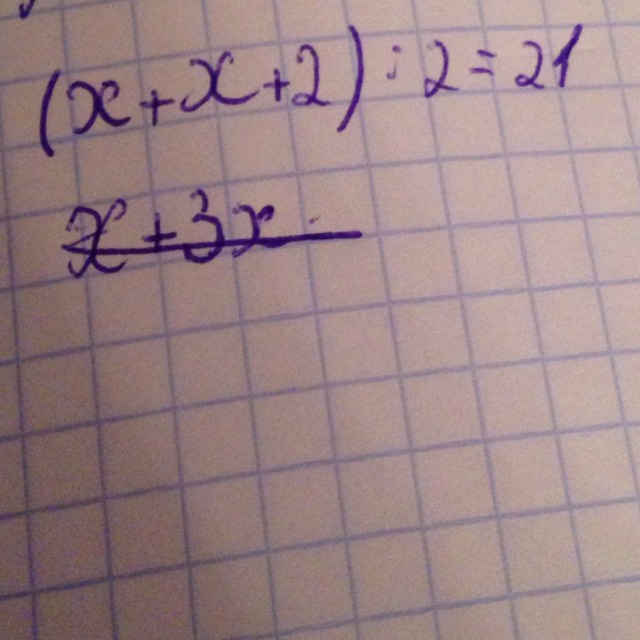 (x+x+2):2=21
x+3x